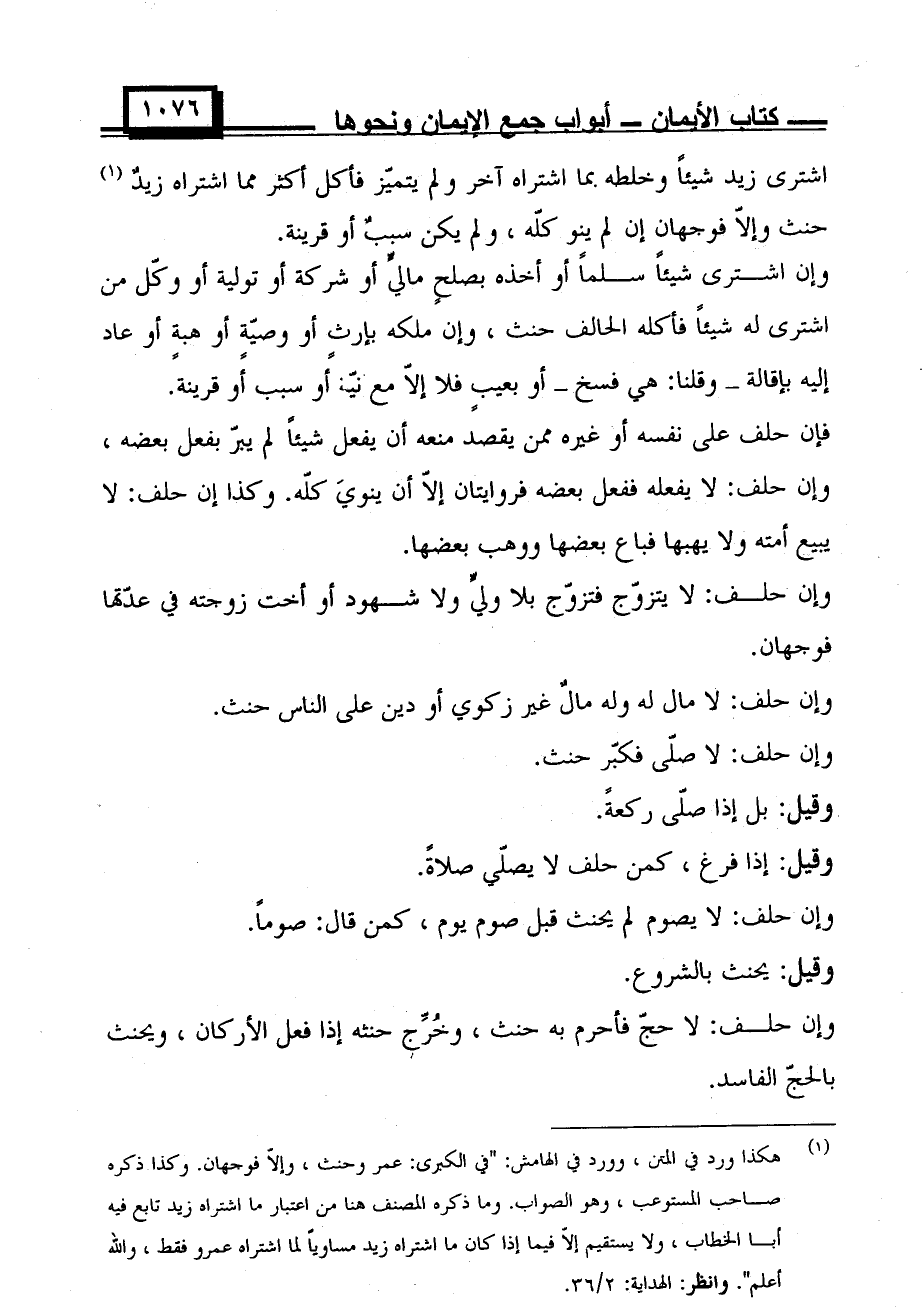 كتاب الأيمان – أبواب جمع الإيمان ونحوها ١٠٧٦
اشترى زيد شيئاً وخلطه بما اشتراه آخر ولم يتميّز فأكل أكثر مما اشتراه زيدٌ (١)
حنث وإلاّ فوجهان إن لم ينو كلّه ، ولم يكن سببٌ أو قرينة.
وإن اشترى شيئاً سلماً أو أخذه بصلحٍ ماليٍّ أو شركة أو تولية أو وكّل من
اشترى له شيئاً فأكله الحالف حنث ، وإن ملكه بإرثٍ أو وصيّةٍ أو هبةٍ أو عاد
إليه بإقالة – وقلنا: هي فسخ – أو بعيبٍ فلا إلاّ مع نيّة أو سبب أو قرينة.
فإن حلف على نفسه أو غيره ممن يقصد منعه أن يفعل شيئاً لم يبرّ بفعل بعضه ،
وإن حلف: لا يفعله ففعل بعضه فروايتان إلاّ أن ينويَ كلّه. وكذا إن حلف: لا
يبيع أمته ولا يهبها فباع بعضها ووهب بعضها.
وإن حلف: لا يتزوّج فتزوّج بلا وليٍّ ولا شهود أو أخت زوجته في عدّتها
فوجهان.
وإن حلف: لا مال له وله مالٌ غير زكوي أو دين على الناس حنث.
وإن حلف: لا صلّى فكبّر حنث.
وقيل: بل إذا صلّى ركعةً.
وقيل: إذا فرغ ، كمن حلف لا يصلّي صلاةً.
وإن حلف: لا يصوم لم يحنث قبل صوم يوم ، كمن قال: صوماً.
وقيل: يحنث بالشروع.
وإن حلف: لا حجّ فأحرم به حنث ، وخُرِّج حنثه إذا فعل الأركان ، ويحنث
بالحجّ الفاسد.
(١) هكذا ورد في المتن ، وورد في الهامش: "في الكبرى: عمر وحنث ، وإلاّ فوجهان. وكذا ذكره
صاحب المستوعب ، وهو الصواب. وما ذكره المصنف هنا من اعتبار ما اشتراه زيد تابع فيه
أبا الخطاب ، ولا يستقيم إلاّ فيما إذا كان ما اشتراه زيد مساوياً لما اشتراه عمرو فقط ، والله
أعلم". وانظر: الهداية: ٣٦/٢.